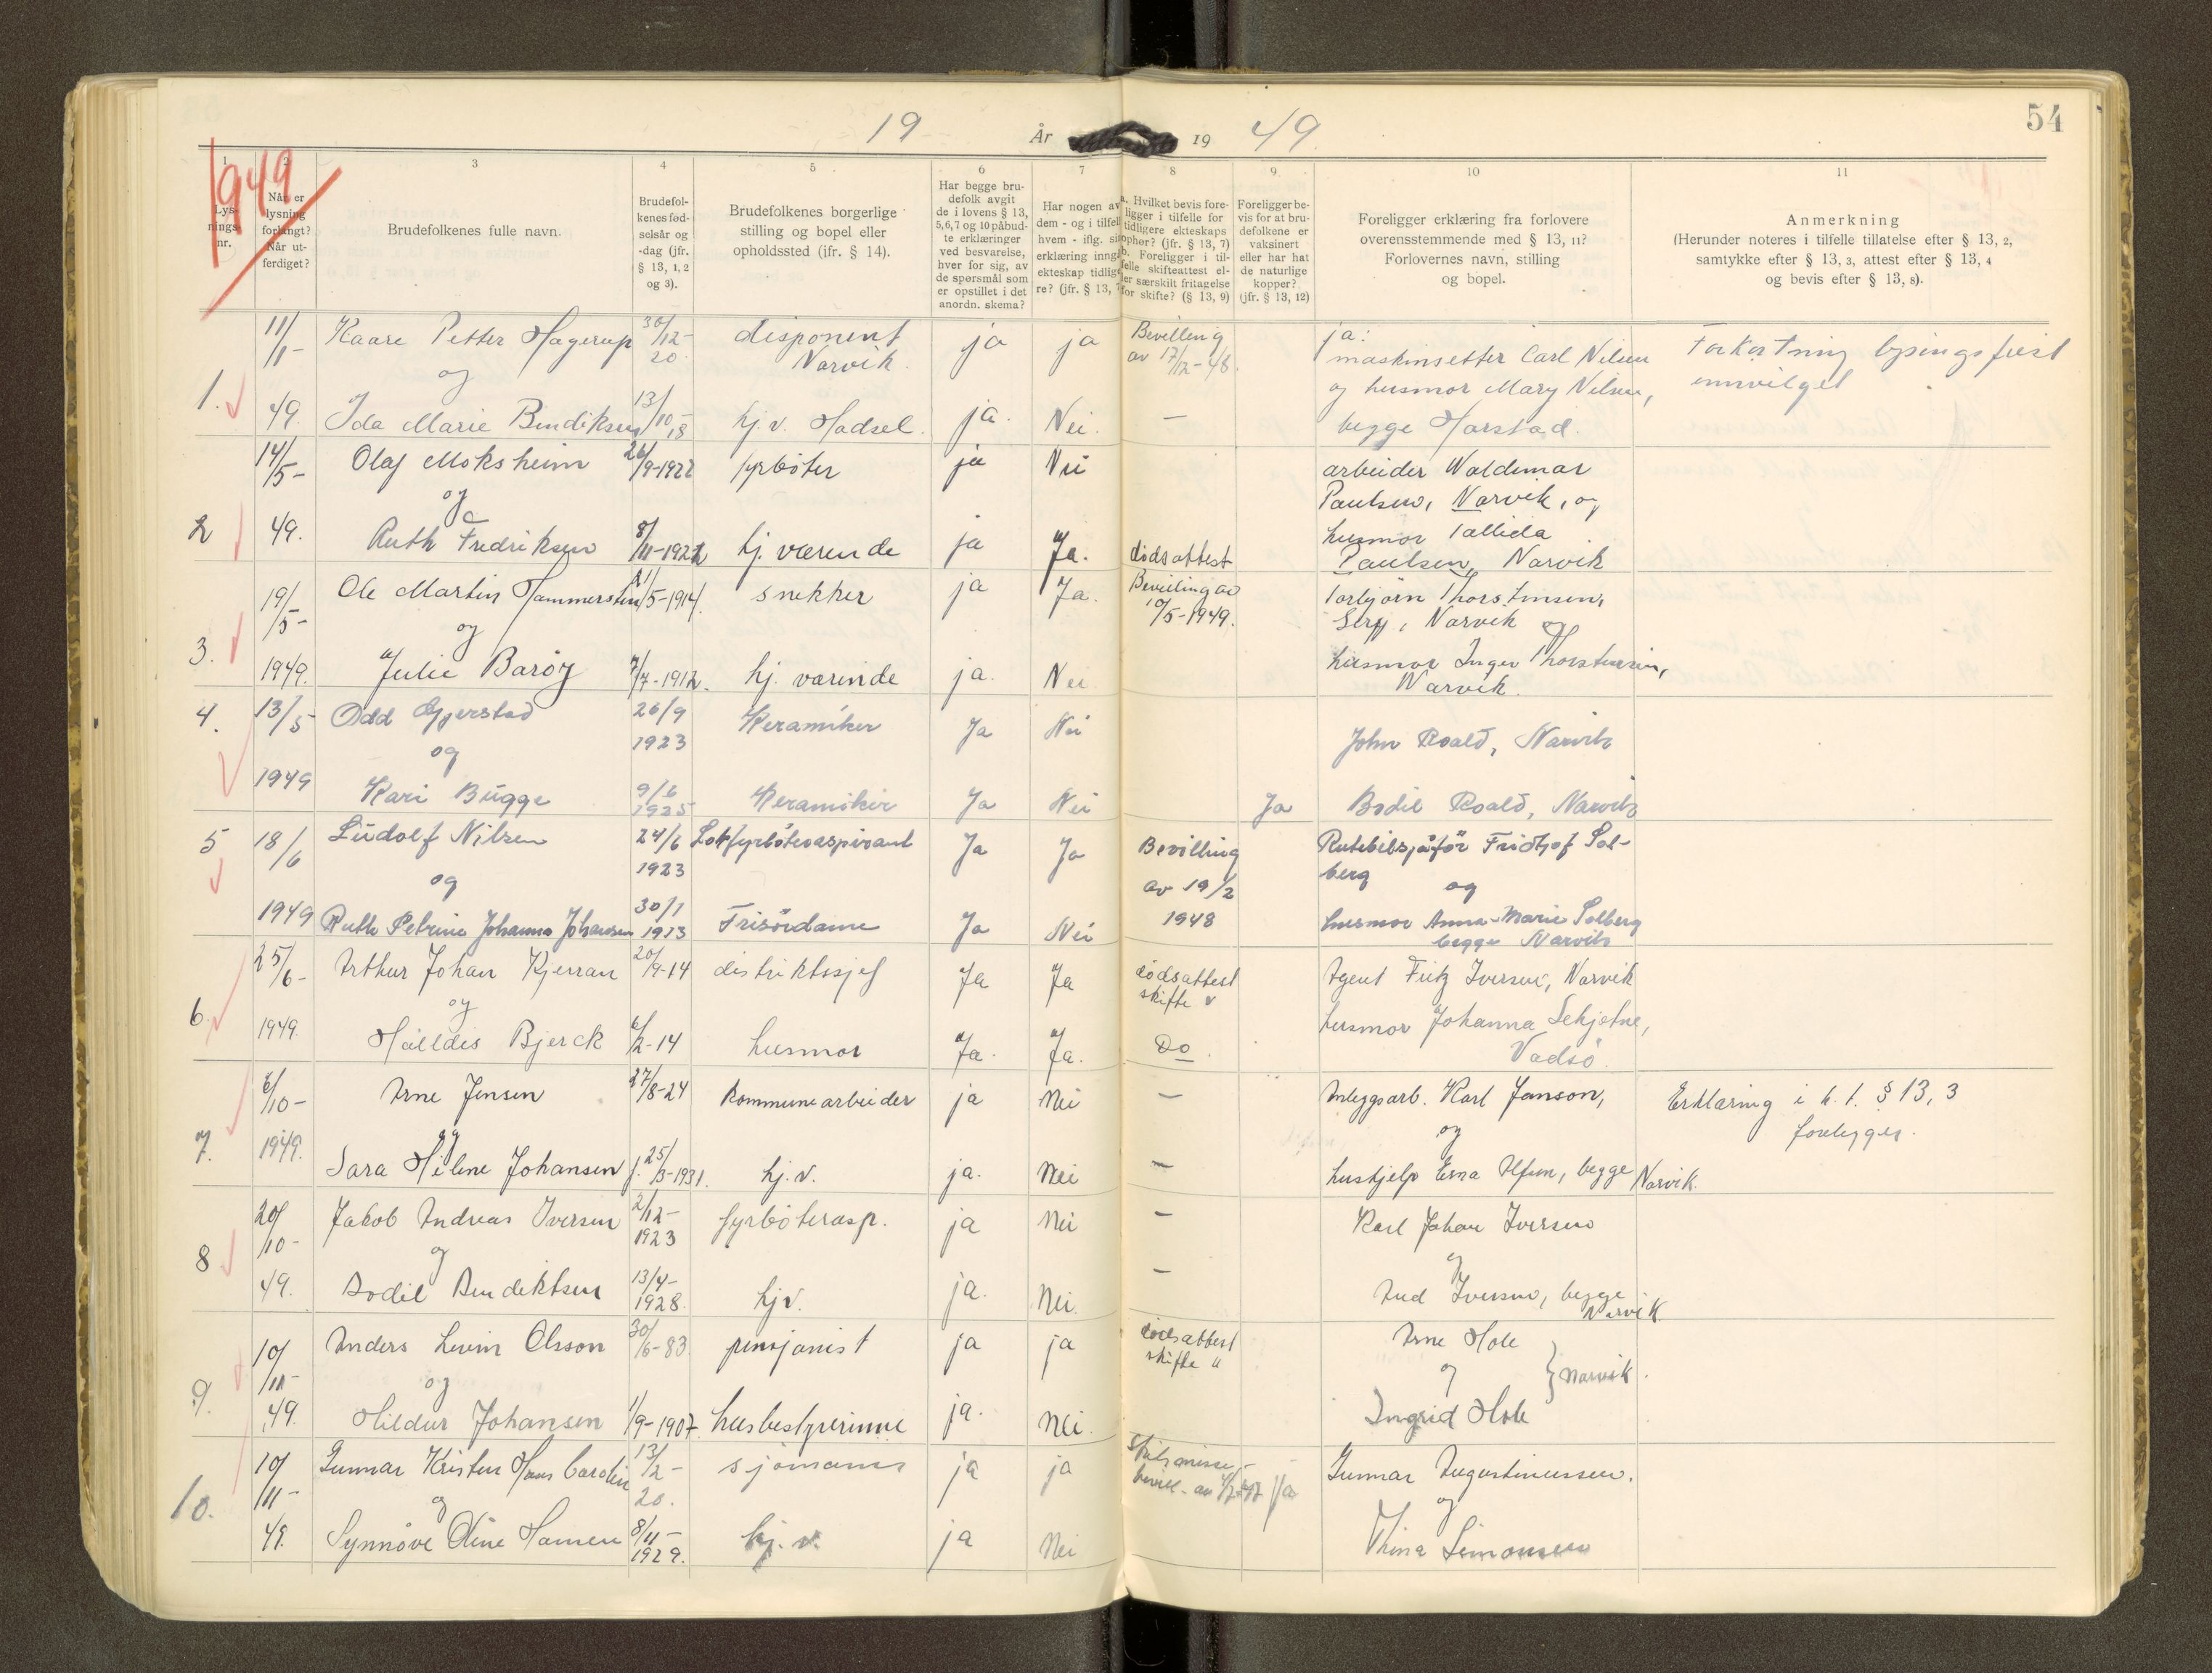 54
19 År 19 49
1949
1 2 3 4 5 6 7 8 9 10 11
Lys-
nings-
nr.
Når er
lysning
forlangt?
Når ut-
ferdiget?
Brudefolkenes fulle navn.
Brudefol-
kenes fød-
selsår og
-dag (jfr.
§ 13, 1, 2
og 3).
Brudefolkenes borgerlige
stilling og bopel eller
opholdssted (ifr. § 14).
Har begge bru-
defolk avgit
de i lovens § 13,
5,6,7 og 10 påbud-
te erklæringer
ved besvarelse,
hver for sig, av
de spørsmål som
er opstillet i det
anordn. skema?
Har nogen av
dem - og i tilfell
hvem - iflg. sin
erklæring inngå
ekteskap tidlige
re? (jfr. § 13, 7
a. Hvilket bevis fore-
ligger i tilfelle for
tidligere ekteskaps
ophør? (jfr. § 13, 7)
b. Foreligger i til-
felle skifteattest el-
ler særskilt fritagelse
for skifte? (§ 13, 9)
Foreligger be-
vis for at bru-
defolkene er
vaksinert
eller har hat
de naturlige
kopper?
(jfr. § 13, 12)
Foreligger erklæring fra forlovere
overensstemmende med § 13, 11?
Forlovernes navn, stilling
og bopel.
Anmerkning
(Herunder noteres i tilfelle tillatelse efter § 13, 2,
samtykke efter § 13, 3, attest efter § 13, 4
og bevis efter § 13, 8).
1. 11/1- 49.
Kaare Petter Hagerup 30/12-20. disponent Narvik. ja ja Bevilling av 17/12-48.
og
Ida Marie Bendiksen 13/10-18 hj.v. Hadsel. ja. Nei. —
ja:
maskinsetter Carl Nilsen
og husmor Mary Nilsen,
begge Harstad.
Forkortning lysingsfrist
innvilget
2 14/5- 49.
Olaf Moksheim 26/9-1922 fyrbøter ja Nei
og
Ruth Fredriksen 8/11-1922 hj. værende ja Ja. dødsattest
arbeider Waldemar
Paulsen, Narvik, og
husmor
Paulsen, Narvik
3. 19/5- 1949.
Ole Martin Hammersten /5-1914. snekker ja Ja. Bevilling av 10/5-1949.
og
Julie Barøy 7/7-1912. hj. værende ja. Nei
Torbjørn Thorstensen,
Narvik og
husmor Inger Thorstensen,
Narvik.
4. 13/5- 1949
Odd Gjerstad 26/9 1923 Keramiker Ja Nei
og
Kari Bugge 9/6 1925 Keramiker Ja Nei Ja
John Roald, Narvik
Bodil Roald, Narvik
5 18/6 1949
Ludolf Nilsen 24/6 1923 Lokfyrbøteraspirant Ja Ja Bevilling av 19/2 1948
og
Ruth Petrine Johanna Johansen 30/1 1913 Frisørdame Ja Nei
Rutebilsjåfør Fridtjof Sol-
berg
og
husmor Anna-Marie Solberg
begge Narvik
6. 25/6- 1949.
Arthur Johan Kjerran 20/9-14 distriktssjef Ja Ja dødsattest skifte "
og
Halldis Bjerck 6/2-14 husmor Ja. Ja. Do.
Agent Fritz Iversen, Narvik
husmor Johanna
Vadsø
7. 6/10- 1949.
Arne Jensen 27/8-24 kommunearbeider ja Nei —
og
Sara Helene Johansen f. 25/3-1931. hj.v. ja. Nei —
Anleggsarb. Karl Janson,
og
hushjelp Erna begge Narvik.
Erklæring i h.t. § 13, 3
foreligger.
8 20/10- 49.
Jakob Andreas Iversen 2/12-1923 fyrbøterasp. ja Nei —
og
Bodil Bendiktsen 13/4-1928. hjv. ja. Nei. —
Karl Johan Iversen
og
Aud Iversen, begge
Narvik.
9. 10/11- 49.
Anders Levin Olsson 30/6-83 pensjonist ja ja dødsattest skifte "
og
Hildur Johansen 1/9-1907. husbestyrerinne ja. Nei.
Arne Hole
og } Narvik.
Ingrid Hole
10. 10/11- 49.
Gunnar Kristen Hans 13/2-20. sjømann ja ja bevill. av Ja
og
Synnøve Oline Hansen 8/11-1929. hj.v. ja Nei
Gunnar Augustinussen.
og
Simonsen